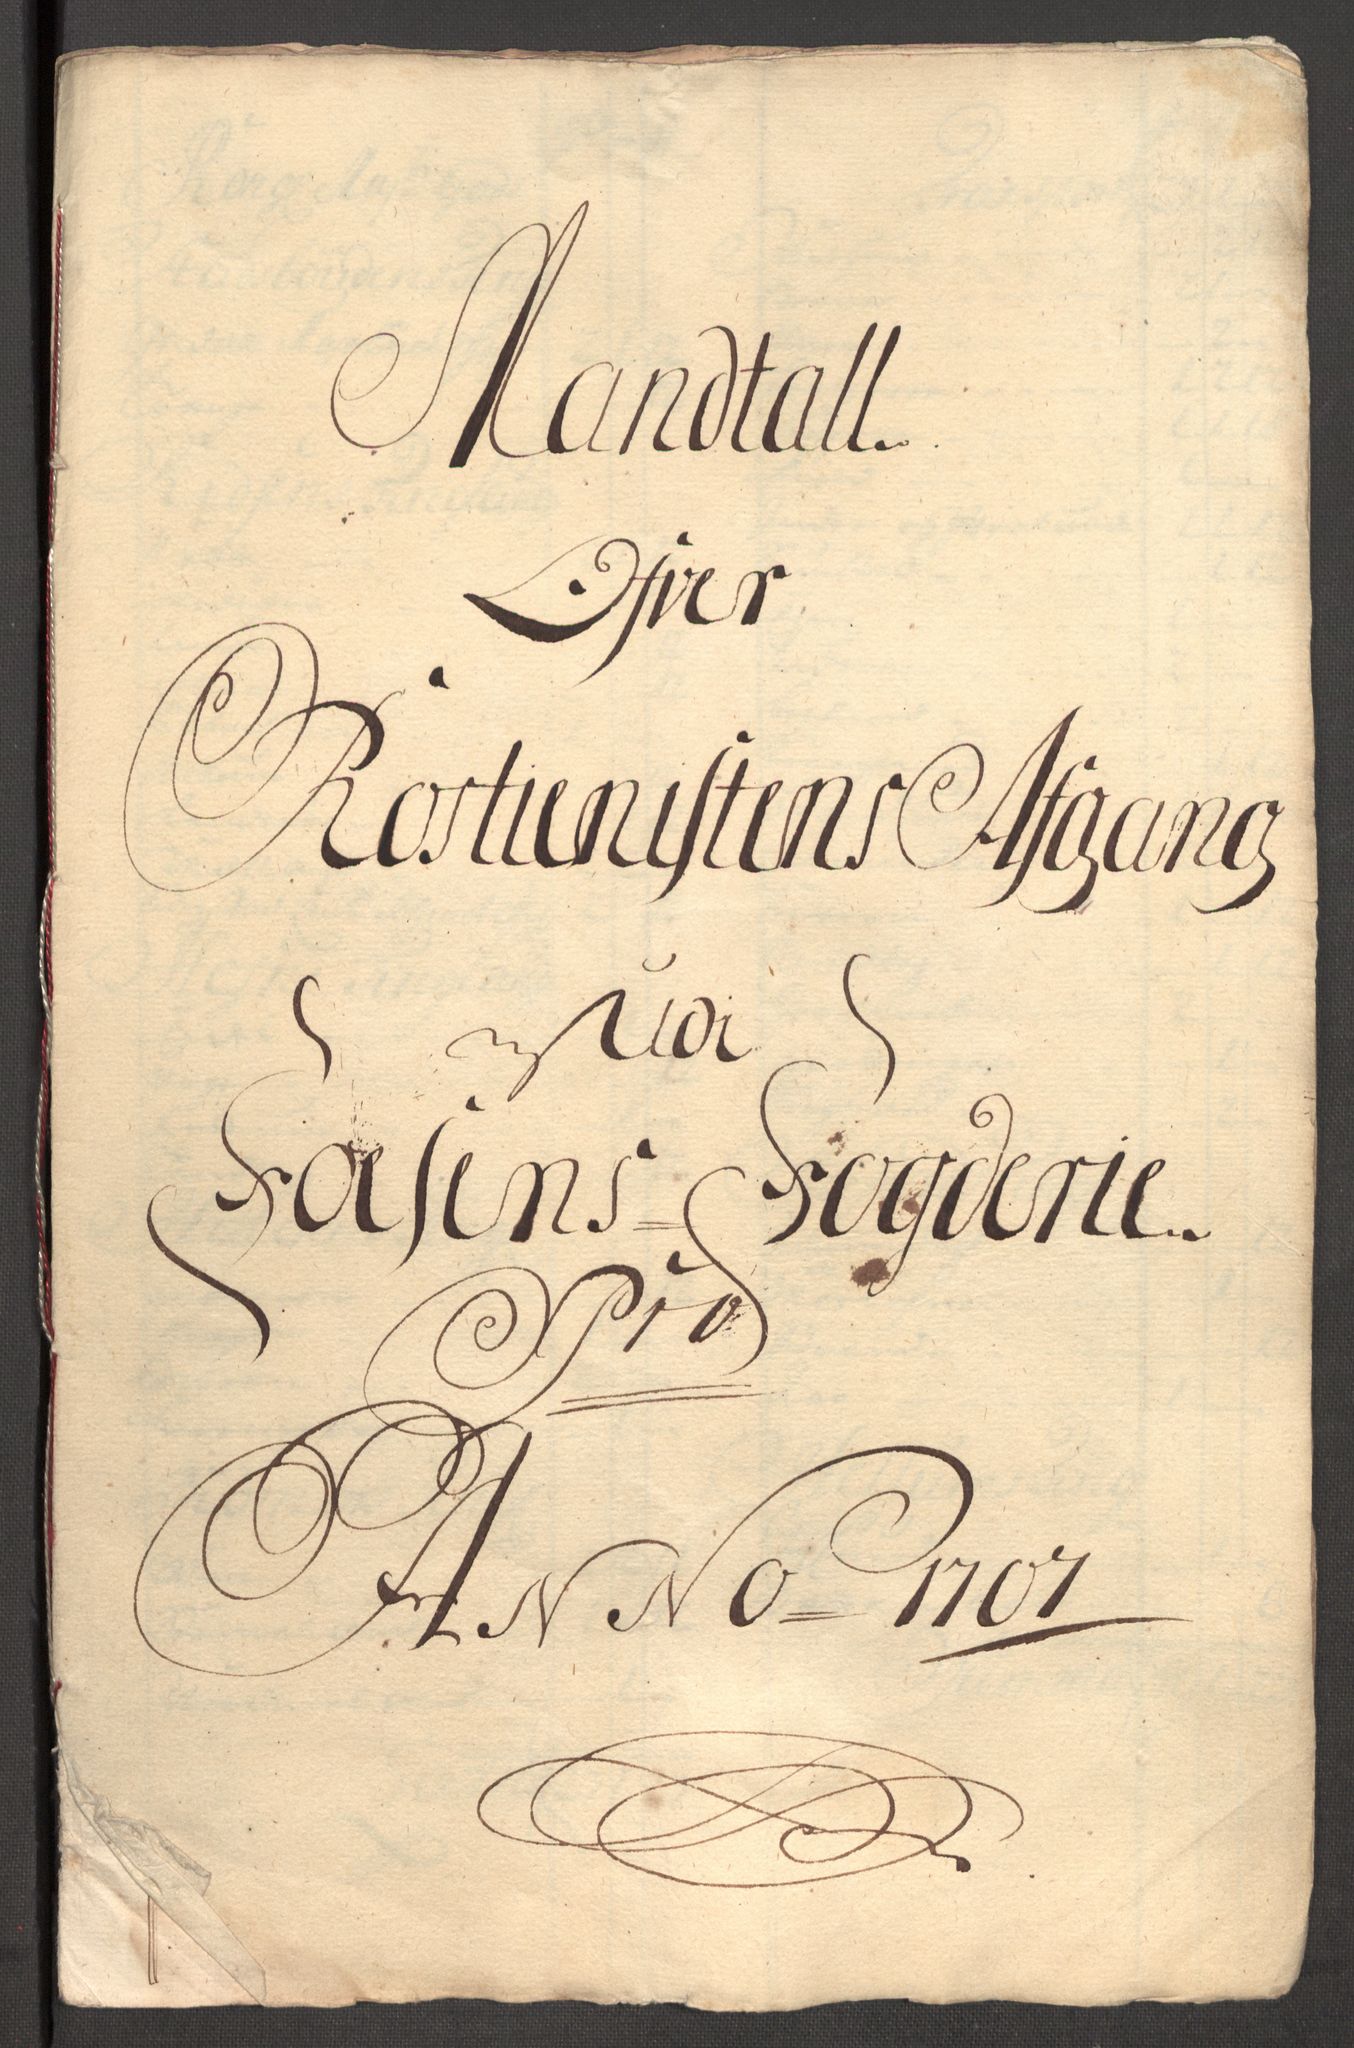 Mandtall.
Ofver
Rostienistens Afgang
Udi
Fosens= Fogderie.
Pro
ANNo= 1707